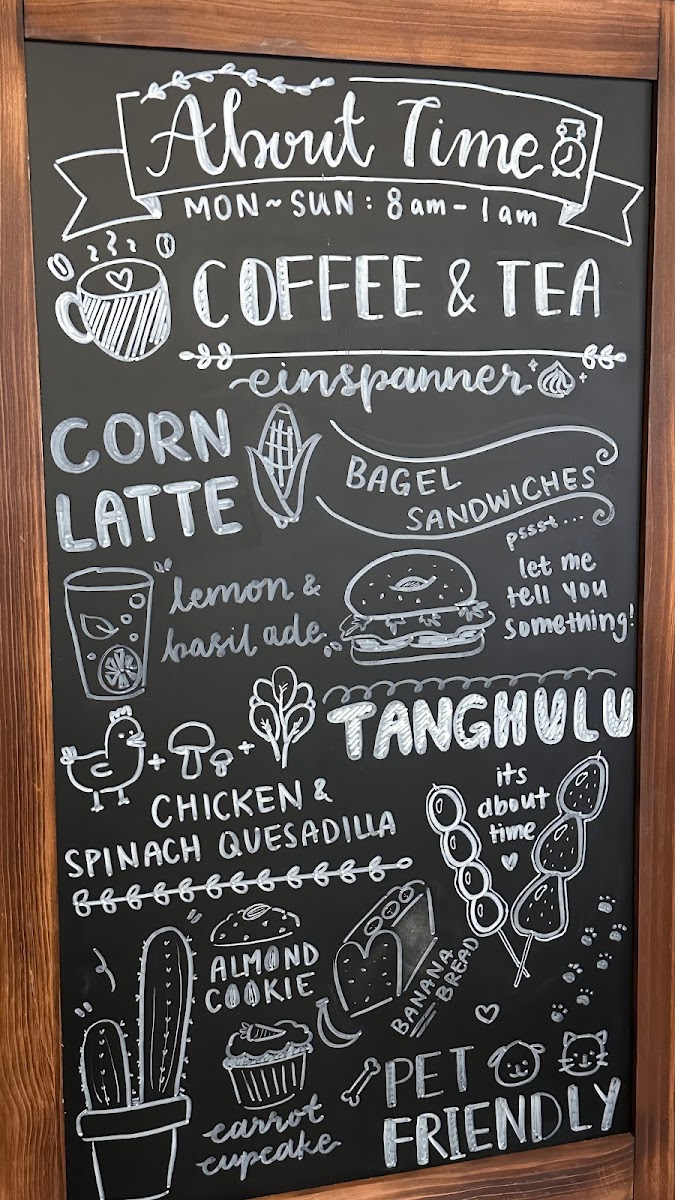 About Time
MON~SUN: 8am-1am
COFFEE & TEA
einspanner
CORN
LATTE
BAGEL
SANDWICHES
pssst...
let me
tell you
something!
lemon &
basil ade
TANGHULU
its
about
time
CHICKEN &
SPINACH QUESADILLA
ALMOND
COOKIE
BANANA
BREAD
carrot
cupcake
PET
FRIENDLY